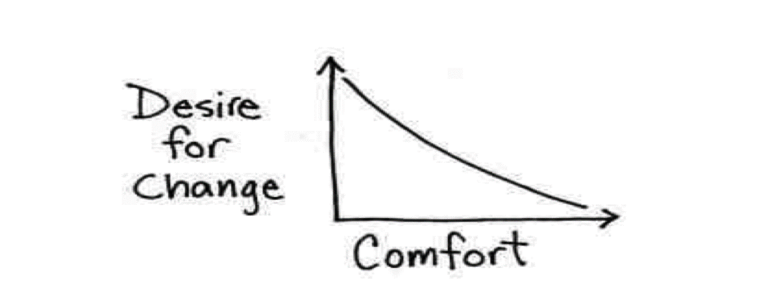 Desire
for
Change
Comfort